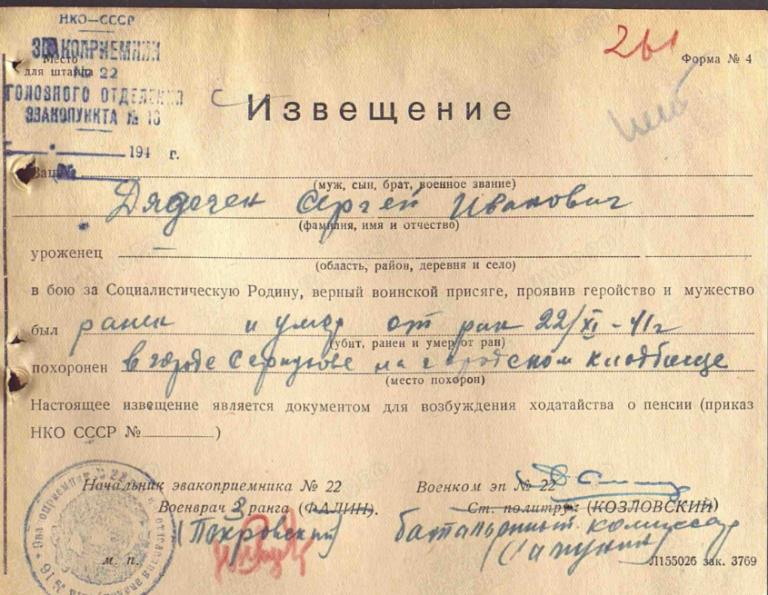 НКО—СССР
ЭВАКОПРИЕМНИК
Место
для штампа № 22
ГОЛОВНОГО ОТДЕЛЕНИЯ
ЭВАКОПУНКТА №
261
Форма № 4
Извещение
194 г.
Ваш
(муж, сын, брат, военное звание)
Дядечен Сергей Иванович
(фамилия, имя и отчество)
уроженец
(область, район, деревня и село)
в бою за Социалистическую Родину, верный воинской присяге, проявив геройство и мужество
был ранен и умер от ран 22/XI-41г
(убит, ранен и умер от ран)
похоронен в городе Серпухове на городском кладбище
(место похорон)
Настоящее извещение является документом для возбуждения ходатайства о пенсии (приказ
НКО СССР № )
Начальник эвакоприемника № 22
Военком эп № 22
Военврач 3 ранга (ФАЛИН).
Ст. политрук (КОЗЛОВСКИЙ)
(Покровский)
батальонный комиссар
м. п.
Л155026 зак. 3769